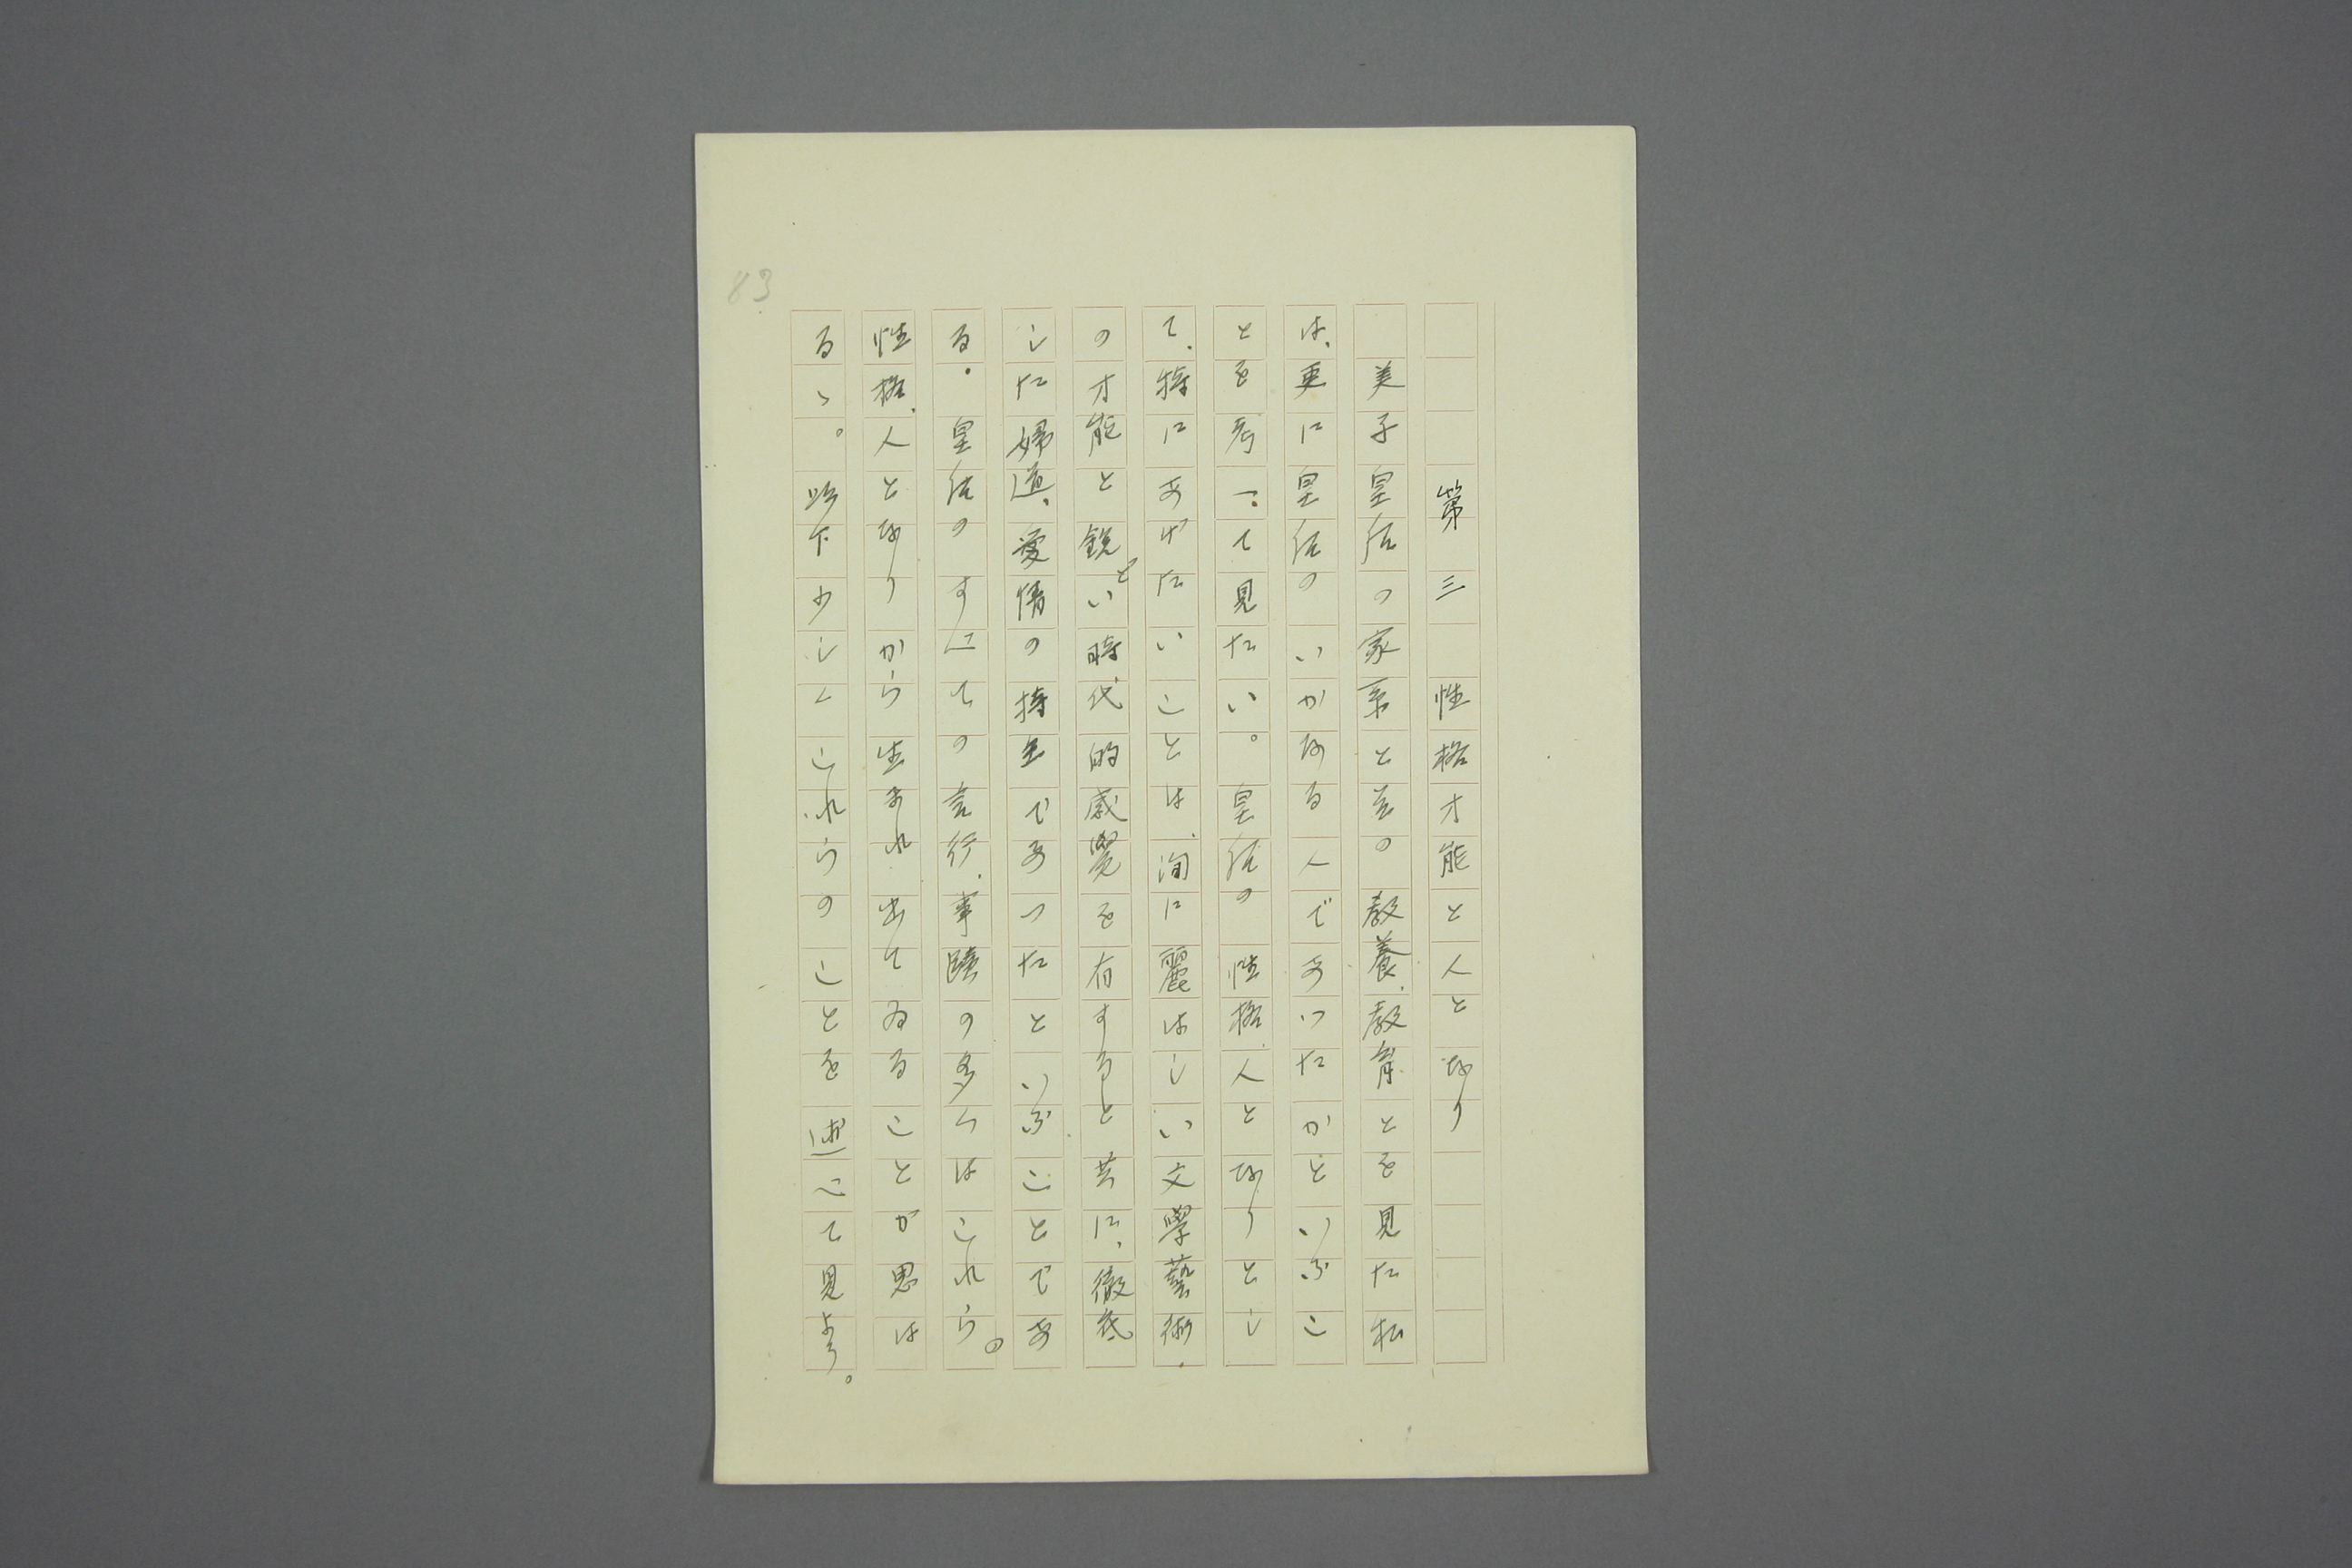 83
第三 性格才能と人となり
美子皇后の家系と其の教養、教育とを見た私
は、更に皇后のいかなる人であつたかといふこ
とを考へて見たい。皇后の性格、人となりとし
て、特にあげたいことは、洵に麗はしい文學藝術、
の才能と鋭どい時代的感覺を有すると共に、徹底
した婦道、愛情の持主であつたといふことであ
る。皇后のすべての言行、事蹟の多くはこれらの
性格、人となりから生まれ出てゐることが思は
るゝ。以下少しくこれらのことを述べて見よう。